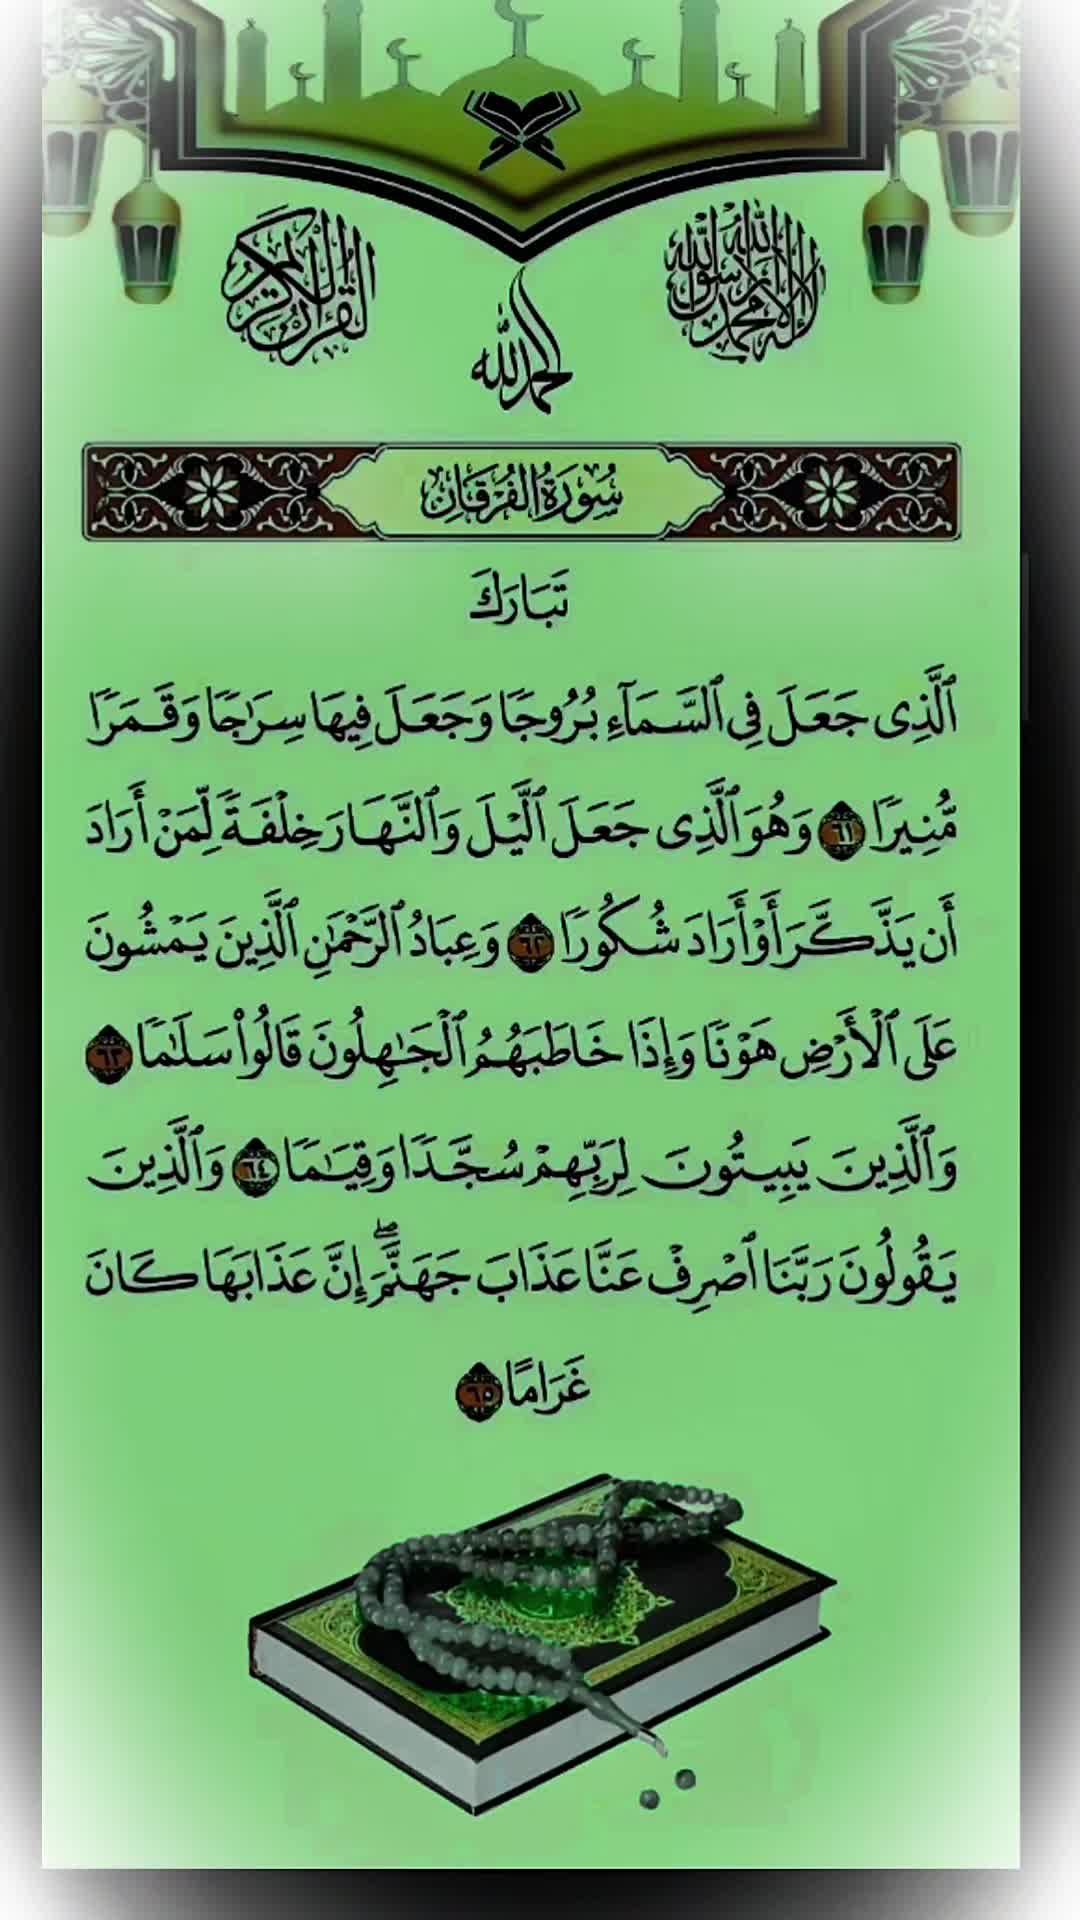 القرآن الكريم
لا إله إلا الله محمد رسول الله
الحمد لله
سُورَةُ الفُرْقَانِ
تَبَارَكَ
ٱلَّذِى جَعَلَ فِى ٱلسَّمَآءِ بُرُوجًا وَجَعَلَ فِيهَا سِرَٰجًا وَقَمَرًا
مُّنِيرًا ٦١ وَهُوَ ٱلَّذِى جَعَلَ ٱلَّيْلَ وَٱلنَّهَارَ خِلْفَةً لِّمَنْ أَرَادَ
أَن يَذَّكَّرَ أَوْ أَرَادَ شُكُورًا ٦٢ وَعِبَادُ ٱلرَّحْمَٰنِ ٱلَّذِينَ يَمْشُونَ
عَلَى ٱلْأَرْضِ هَوْنًا وَإِذَا خَاطَبَهُمُ ٱلْجَٰهِلُونَ قَالُوا۟ سَلَٰمًا ٦٣
وَٱلَّذِينَ يَبِيتُونَ لِرَبِّهِمْ سُجَّدًا وَقِيَٰمًا ٦٤ وَٱلَّذِينَ
يَقُولُونَ رَبَّنَا ٱصْرِفْ عَنَّا عَذَابَ جَهَنَّمَ ۖ إِنَّ عَذَابَهَا كَانَ
غَرَامًا ٦٥